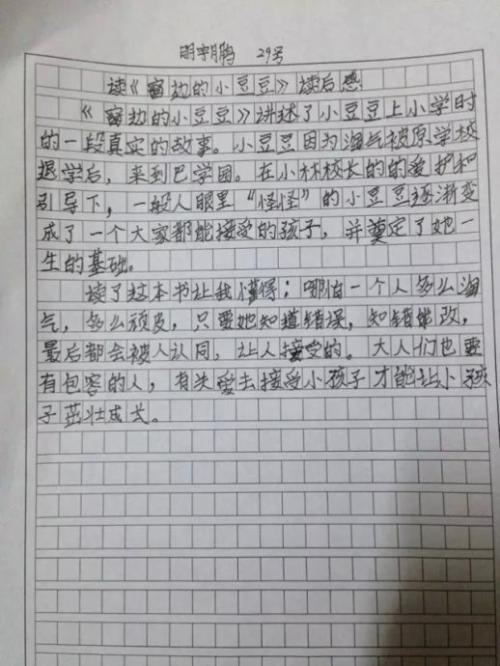 明宇鹏 29号
读《窗边的小豆豆》读后感
《窗边的小豆豆》讲述了小豆豆上小学时
的一段真实的故事。小豆豆因为淘气被原学校
退学后,来到巴学园。在小林校长的的爱护和
引导下,一般人眼里“怪怪”的小豆豆逐渐变
成了一个大家都能接受的孩子,并奠定了她一
生的基础。
读了这本书让我懂得:哪怕一个人多么淘
气,多么顽皮,只要她知道错误,知错能改,
最后都会被人认同,让人接受的。大人们也要
有包容的人,有关爱去接受小孩子才能让小孩
子茁壮成长。